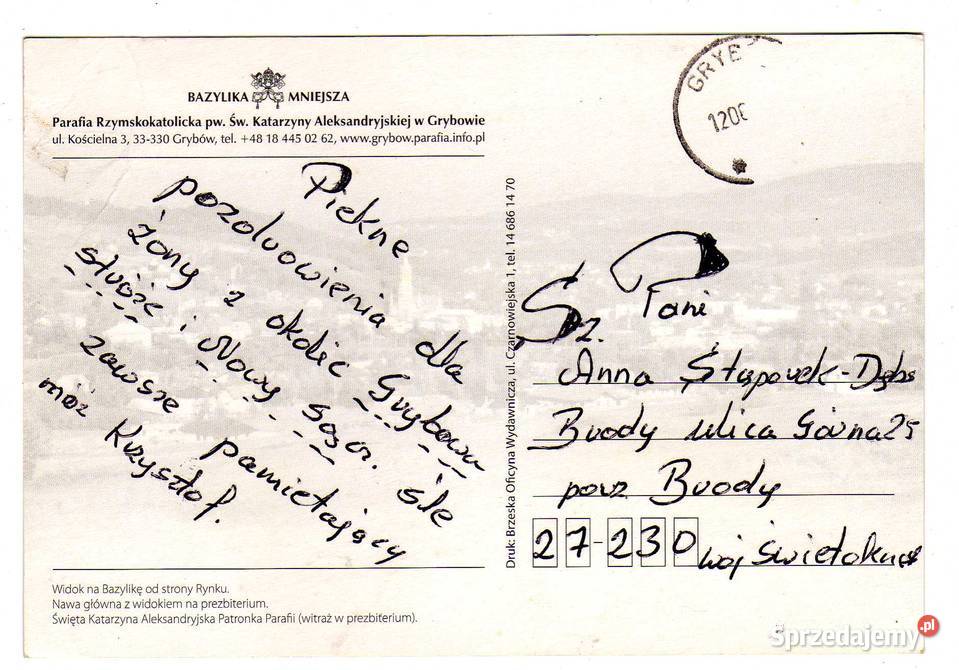 BAZYLIKA MNIEJSZA
Parafia Rzymskokatolicka pw. Św. Katarzyny Aleksandryjskiej w Grybowie
ul. Kościelna 3, 33-330 Grybów, tel. +48 18 445 02 62, www.grybow.parafia.info.pl
Piękne
pozdrowienia dla
żony z okolic Grybowa
służe i Nowy Sącz. śle
zawsze pamiętający
mąż Krzysztof.
Widok na Bazylikę od strony Rynku.
Nawa główna z widokiem na prezbiterium.
Święta Katarzyna Aleksandryjska Patronka Parafii (witraż w prezbiterium).
Druk: Brzeska Oficyna Wydawnicza, ul. Czarnowiejska 1, tel. 14 686 14 70
GRYB
1206
Sz. Pani
Anna Stąporek-Dąbr
Brody ulica Górna 25
Brody
27-230 woj Świętok
Sprzedajemy.pl